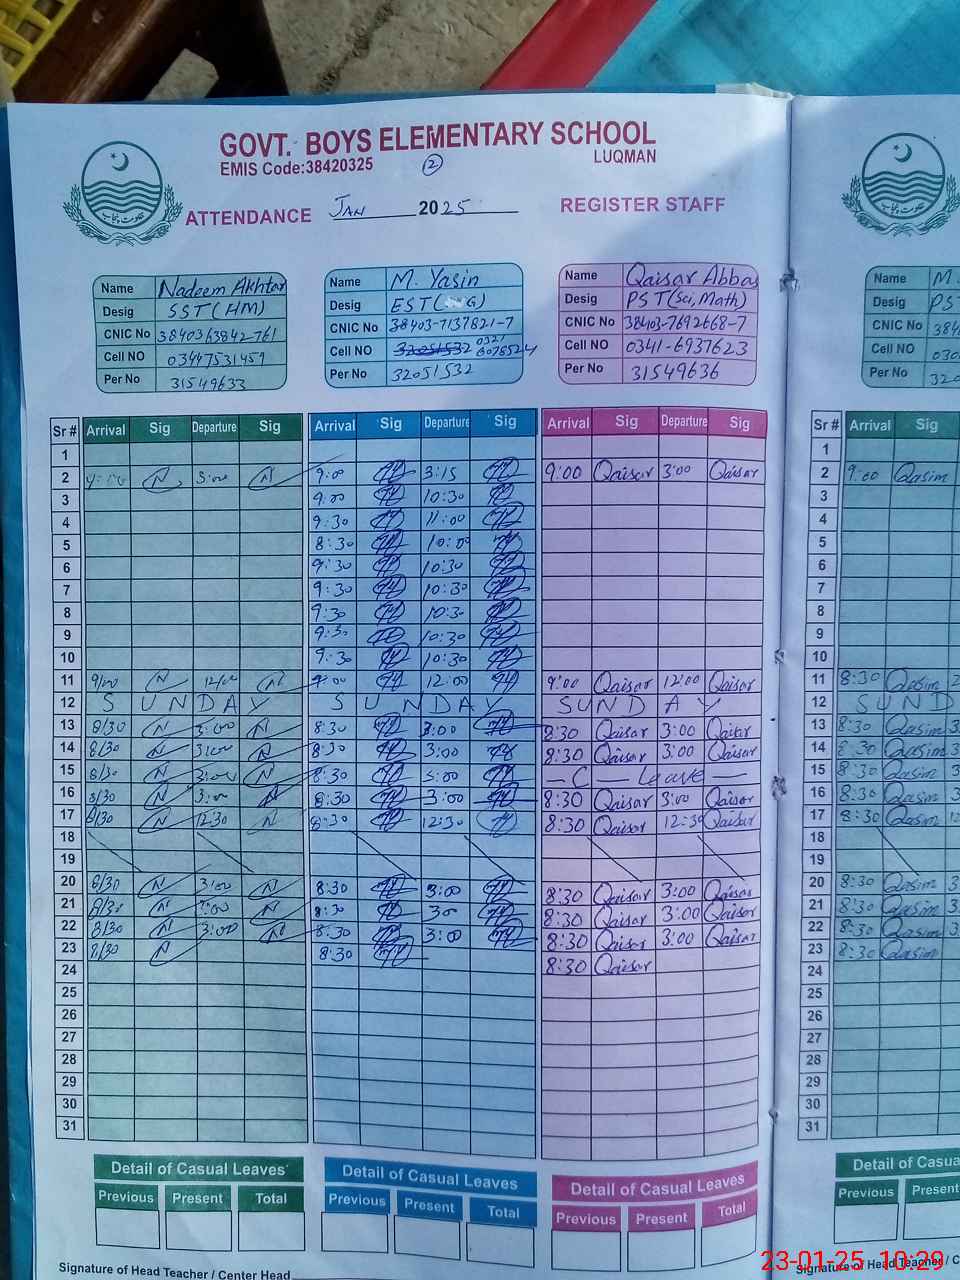 GOVT. BOYS ELEMENTARY SCHOOL
EMIS Code:38420325 ② LUQMAN
حکومت پنجاب
ATTENDANCE JAN 2025 REGISTER STAFF
Name Nadeem Akhtar
Desig SST (HM)
CNIC No 3840363842-761
Cell NO 03447531459
Per No 31549633
Name M. Yasin
Desig EST
CNIC No 38403-7137821-7
Cell NO 32051532 0321 6078524
Per No 32051532
Name Qaisar Abbas
Desig PST (Sci, Math)
CNIC No 38403-7692668-7
Cell NO 0341-6937623
Per No 31549636
Name M.
Desig PST
CNIC No 384
Cell NO 030
Per No 320
Sr # Arrival Sig Departure Sig Arrival Sig Departure Sig Arrival Sig Departure Sig Sr # Arrival Sig
1 1
2 9:00 N 3:00 N 9:00 3:15 9:00 Qaisar 3:00 Qaisar 2 9:00 Qasim
3 9:00 10:30 3
4 9:30 11:00 4
5 8:30 10:00 5
6 9:30 10:30 6
7 9:30 10:30 7
8 9:30 10:30 8
9 9:30 10:30 9
10 9:30 10:30 10
11 9/00 N 12/00 N 9:00 12:00 9:00 Qaisar 12:00 Qaisar 11 8:30 Qasim 2
12 SUNDAY SUNDAY SUNDAY 12 SUND
13 8/30 N 3:00 N 8:30 3:00 8:30 Qaisar 3:00 Qaisar 13 8:30 Qasim 3
14 8/30 N 3:00 N 8:30 3:00 8:30 Qaisar 3:00 Qaisar 14 8:30 Qasim 3
15 8/30 N 3:00 N 8:30 3:00 — C — Leave — 15 8:30 Qasim 3
16 8/30 N 3:00 N 8:30 3:00 8:30 Qaisar 3:00 Qaisar 16 8:30 Qasim 3
17 8/30 N 12:30 N 8:30 12:30 8:30 Qaisar 12:30 Qaisar 17 8:30 Qasim 12
18 18
19 19
20 8/30 N 3:00 N 8:30 3:00 8:30 Qaisar 3:00 Qaisar 20 8:30 Qasim 3
21 8/30 N 3:00 N 8:30 300 8:30 Qaisar 3:00 Qaisar 21 8:30 Qasim 3
22 8/30 N 3:00 N 8:30 3:00 8:30 Qaisar 3:00 Qaisar 22 8:30 Qasim 3
23 8/30 N 8:30 8:30 Qaisar 23 8:30 Qasim
24 24
25 25
26 26
27 27
28 28
29 29
30 30
31 31
Detail of Casual Leaves Detail of Casual Leaves Detail of Casual Leaves Detail of Casua
Previous Present Total Previous Present Total Previous Present Total Previous Present
Signature of Head Teacher / Center Head Signature of Head Teacher / C
23-01-25 10:29